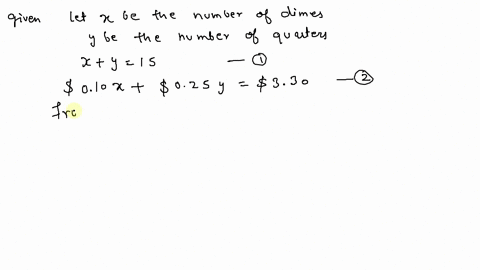 given let x be the number of dimes
y be the number of quarters
x + y = 15 — ①
$ 0.10 x + $ 0.25 y = $ 3.30 — ②
Fro